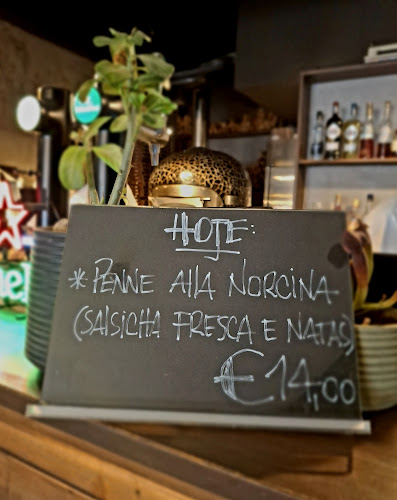 HOJE:
*PENNE AllA NORCINA
(SAlSICHA FRESCA E NATAS)
€14,00